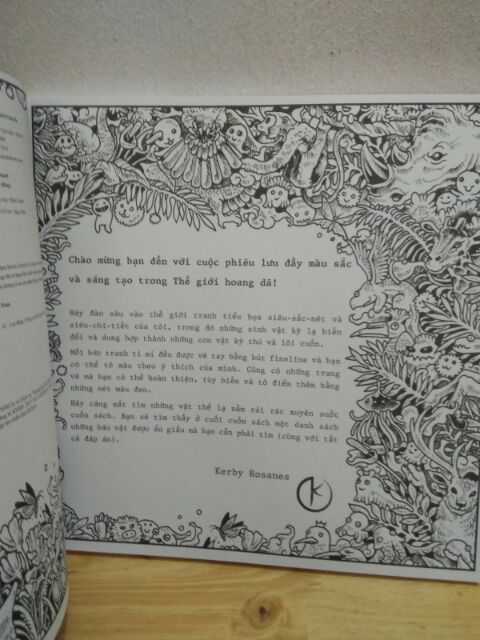 Chào mừng bạn đến với cuộc phiêu lưu đầy màu sắc
và sáng tạo trong Thế giới hoang dã!
Hãy đào sâu vào thế giới tranh tiểu họa siêu-sắc-nét và
siêu-chi-tiết của tôi, trong đó những sinh vật kỳ lạ biến
đổi và dung hợp thành những con vật kỳ thú và lôi cuốn.
Mỗi bức tranh tỉ mỉ đều được vẽ tay bằng bút fineline và bạn
có thể tô màu theo ý thích của mình. Cũng có những trang
vẽ mà bạn có thể hoàn thiện, tùy biến và tô điểm thêm bằng
những nét màu đen.
Hãy căng mắt tìm những vật thể lạ nằm rải rác xuyên suốt
cuốn sách. Bạn sẽ tìm thấy ở cuối cuốn sách một danh sách
những báu vật được ẩn giấu mà bạn cần phải tìm (cùng với tất
cả đáp án).
Kerby Rosanes
K